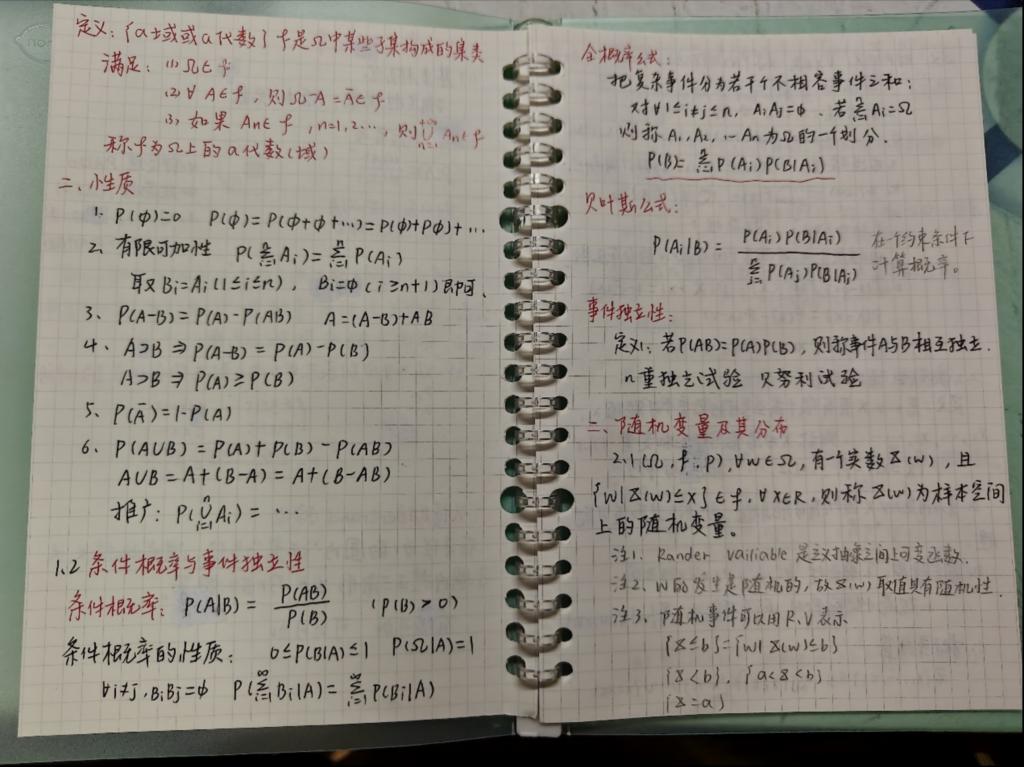 定义:{a域或a代数} f是Ω中某些子集构成的集类
满足: (1) Ω∈f
(2) ∀ A∈f, 则Ω-A=Ā∈f
(3) 如果 An∈f, n=1,2…, 则 ⋃_{n=1}^{+∞} An∈f
称f为Ω上的a代数(域)
二、性质
1. P(ϕ)=0 P(ϕ)=P(ϕ+ϕ+…)=P(ϕ)+P(ϕ)+…
2. 有限可加性 P(∑_{i=1}^{n} Ai)=∑_{i=1}^{n} P(Ai)
取 Bi=Ai(1≤i≤n), Bi=ϕ(i≥n+1)即可.
3. P(A-B)=P(A)-P(AB) A=(A-B)+AB
4. A⊃B ⇒ P(A-B)=P(A)-P(B)
A⊃B ⇒ P(A)≥P(B)
5. P(Ā)=1-P(A)
6. P(A∪B)=P(A)+P(B)-P(AB)
A∪B=A+(B-A)=A+(B-AB)
推广: P(⋃_{i=1}^{n} Ai)=…
1.2 条件概率与事件独立性
条件概率: P(A|B)= P(AB)/P(B) (P(B)>0)
条件概率的性质: 0≤P(B|A)≤1 P(Ω|A)=1
∀i≠j, BiBj=ϕ P(∑_{i=1}^{∞} Bi|A)=∑_{i=1}^{∞} P(Bi|A)
全概率公式:
把复杂事件分为若干个不相容事件之和:
对∀1≤i≠j≤n, AiAj=ϕ. 若∑_{i=1}^{n} Ai=Ω
则称A1, A2, …An为Ω的一个划分.
P(B)=∑_{i=1}^{n} P(Ai)P(B|Ai)
贝叶斯公式:
P(Ai|B)= P(Ai)P(B|Ai)/∑_{j=1}^{n} P(Aj)P(B|Aj) 在一个约束条件下
计算概率。
事件独立性:
定义1: 若P(AB)=P(A)P(B), 则称事件A与B相互独立.
n重独立试验 贝努利试验
二、随机变量及其分布
2.1 (Ω, f, P), ∀w∈Ω, 有一个实数X(w), 且
{w|X(w)≤x}∈f, ∀x∈R, 则称X(w)为样本空间
上的随机变量。
注1. Rander vailiable 是定义抽象空间上可变函数.
注2、w的发生是随机的, 故X(w)取值具有随机性.
注3、随机事件可以用R、V表示
{X≤b}={w|X(w)≤b}
{X<b}, {a<X<b}
{X=a}